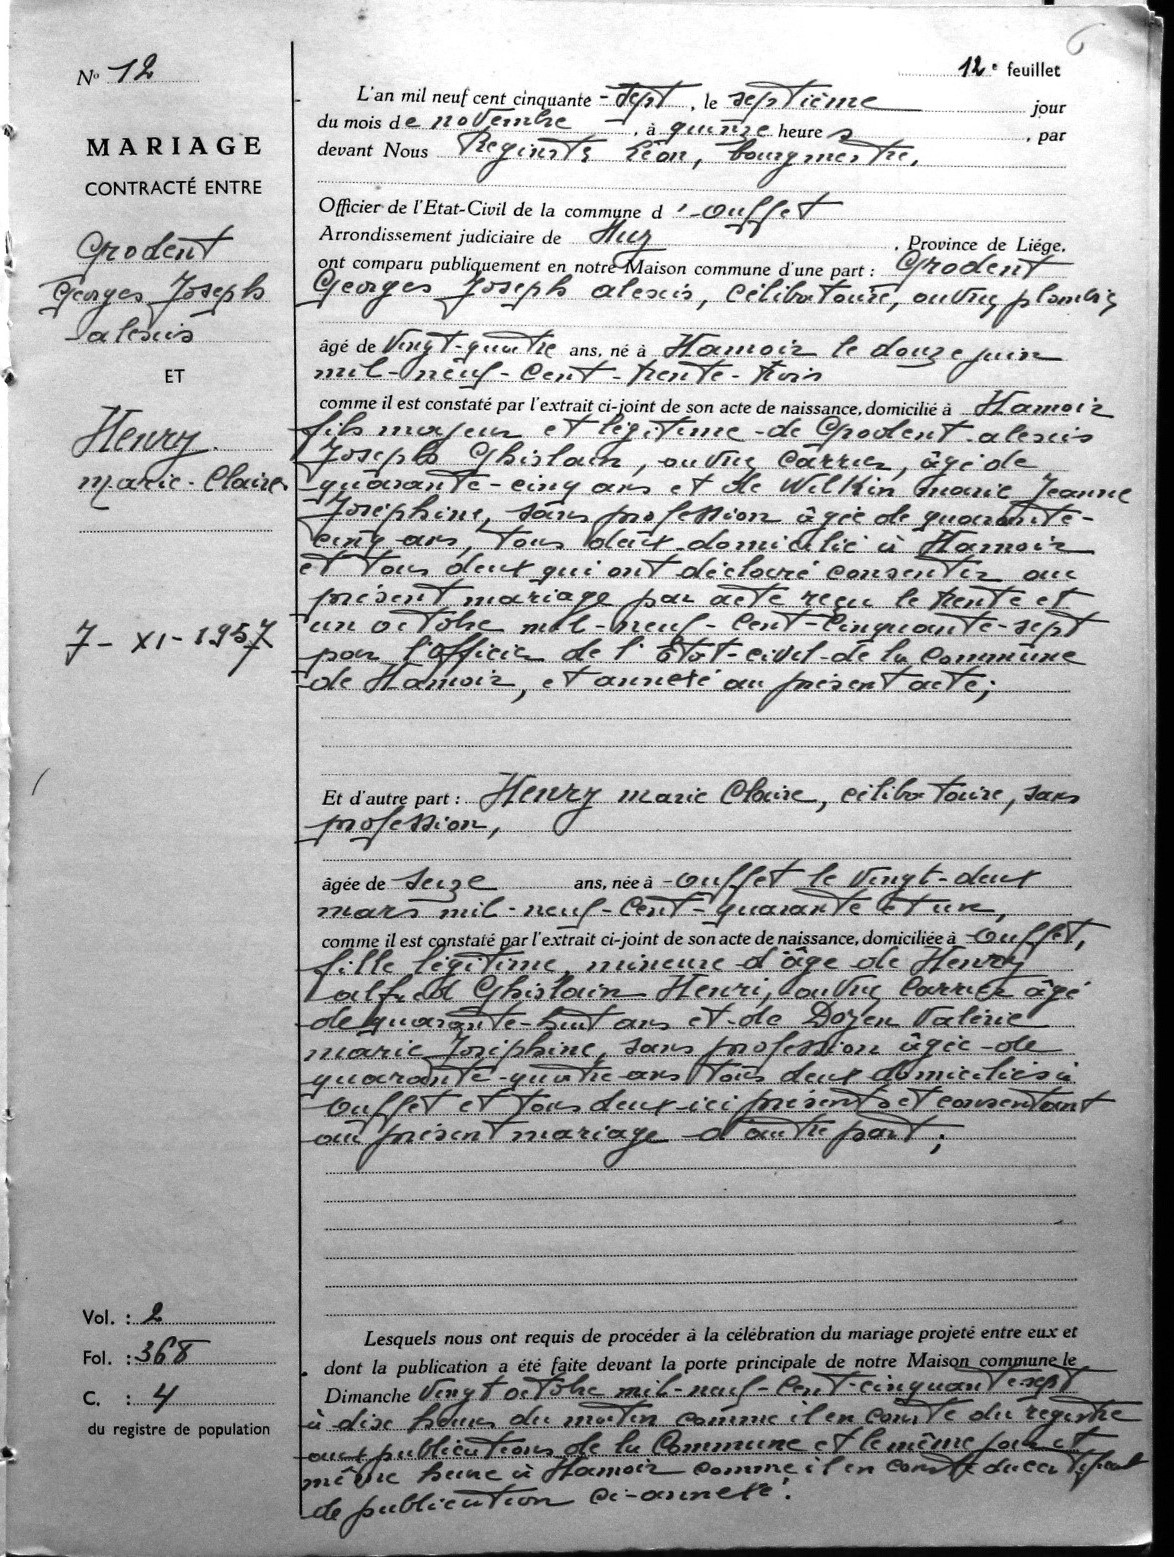 6
Nº 12
MARIAGE
CONTRACTÉ ENTRE
Grodent
Georges Joseph
alexis
ET
Henry
marie-Claire
7-XI-1957
Vol. : 2
Fol. : 368
C. : 4
du registre de population
12e feuillet
L'an mil neuf cent cinquante-sept, le septième jour
du mois de novembre, à quinze heures, par
devant Nous Léon, bourgmestre,
Officier de l'Etat-Civil de la commune d'-ouffet
Arrondissement judiciaire de Huy, Province de Liége,
ont comparu publiquement en notre Maison commune d'une part : Grodent
Georges Joseph alexis, célibataire, ouvrier plombier
âgé de vingt-quatre ans, né à Hamoir le douze juin
mil-neuf-cent-trente-trois
comme il est constaté par l'extrait ci-joint de son acte de naissance, domicilié à Hamoir
fils majeur et légitime de Grodent alexis
Joseph Ghislain, ouvrier carrier, âgé de
quarante-cinq ans et de Wilkin marie Jeanne
Joséphine, sans profession âgée de quarante-
cinq ans, tous deux domicilié à Hamoir
et tous deux qui ont déclaré consentir au
présent mariage par acte reçu le trente et
un octobre mil-neuf-cent-cinquante-sept
par l'officier de l'Etat-civil de la commune
de Hamoir, et annexé au présent acte;
Et d'autre part : Henry marie Claire, célibataire, sans
profession,
âgée de seize ans, née à ouffet le vingt-deux
mars mil-neuf-cent-quarante et un,
comme il est constaté par l'extrait ci-joint de son acte de naissance, domiciliée à ouffet,
fille légitime, mineure d'âge de Henry
alfred Ghislain Henri, ouvrier carrier âgé
de quarante-huit ans et de Doyen Valérie
marie Joséphine, sans profession âgée de
quarante-quatre ans tous deux domiciliés à
ouffet et tous deux ici présents et consentant
au présent mariage d'autre part;
Lesquels nous ont requis de procéder à la célébration du mariage projeté entre eux et
dont la publication a été faite devant la porte principale de notre Maison commune le
Dimanche vingt octobre mil-neuf-cent-cinquante sept
à dix heures du matin comme il en conste du registre
aux publications de la Commune et le même jour et
même heure à Hamoir comme il en conste du certificat
de publication ci-annexé.